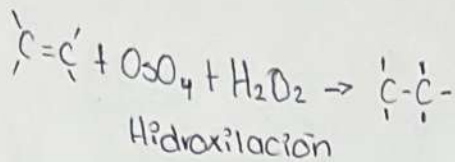 C=C + OsO4 + H2O2 → C-C-
Hidroxilación